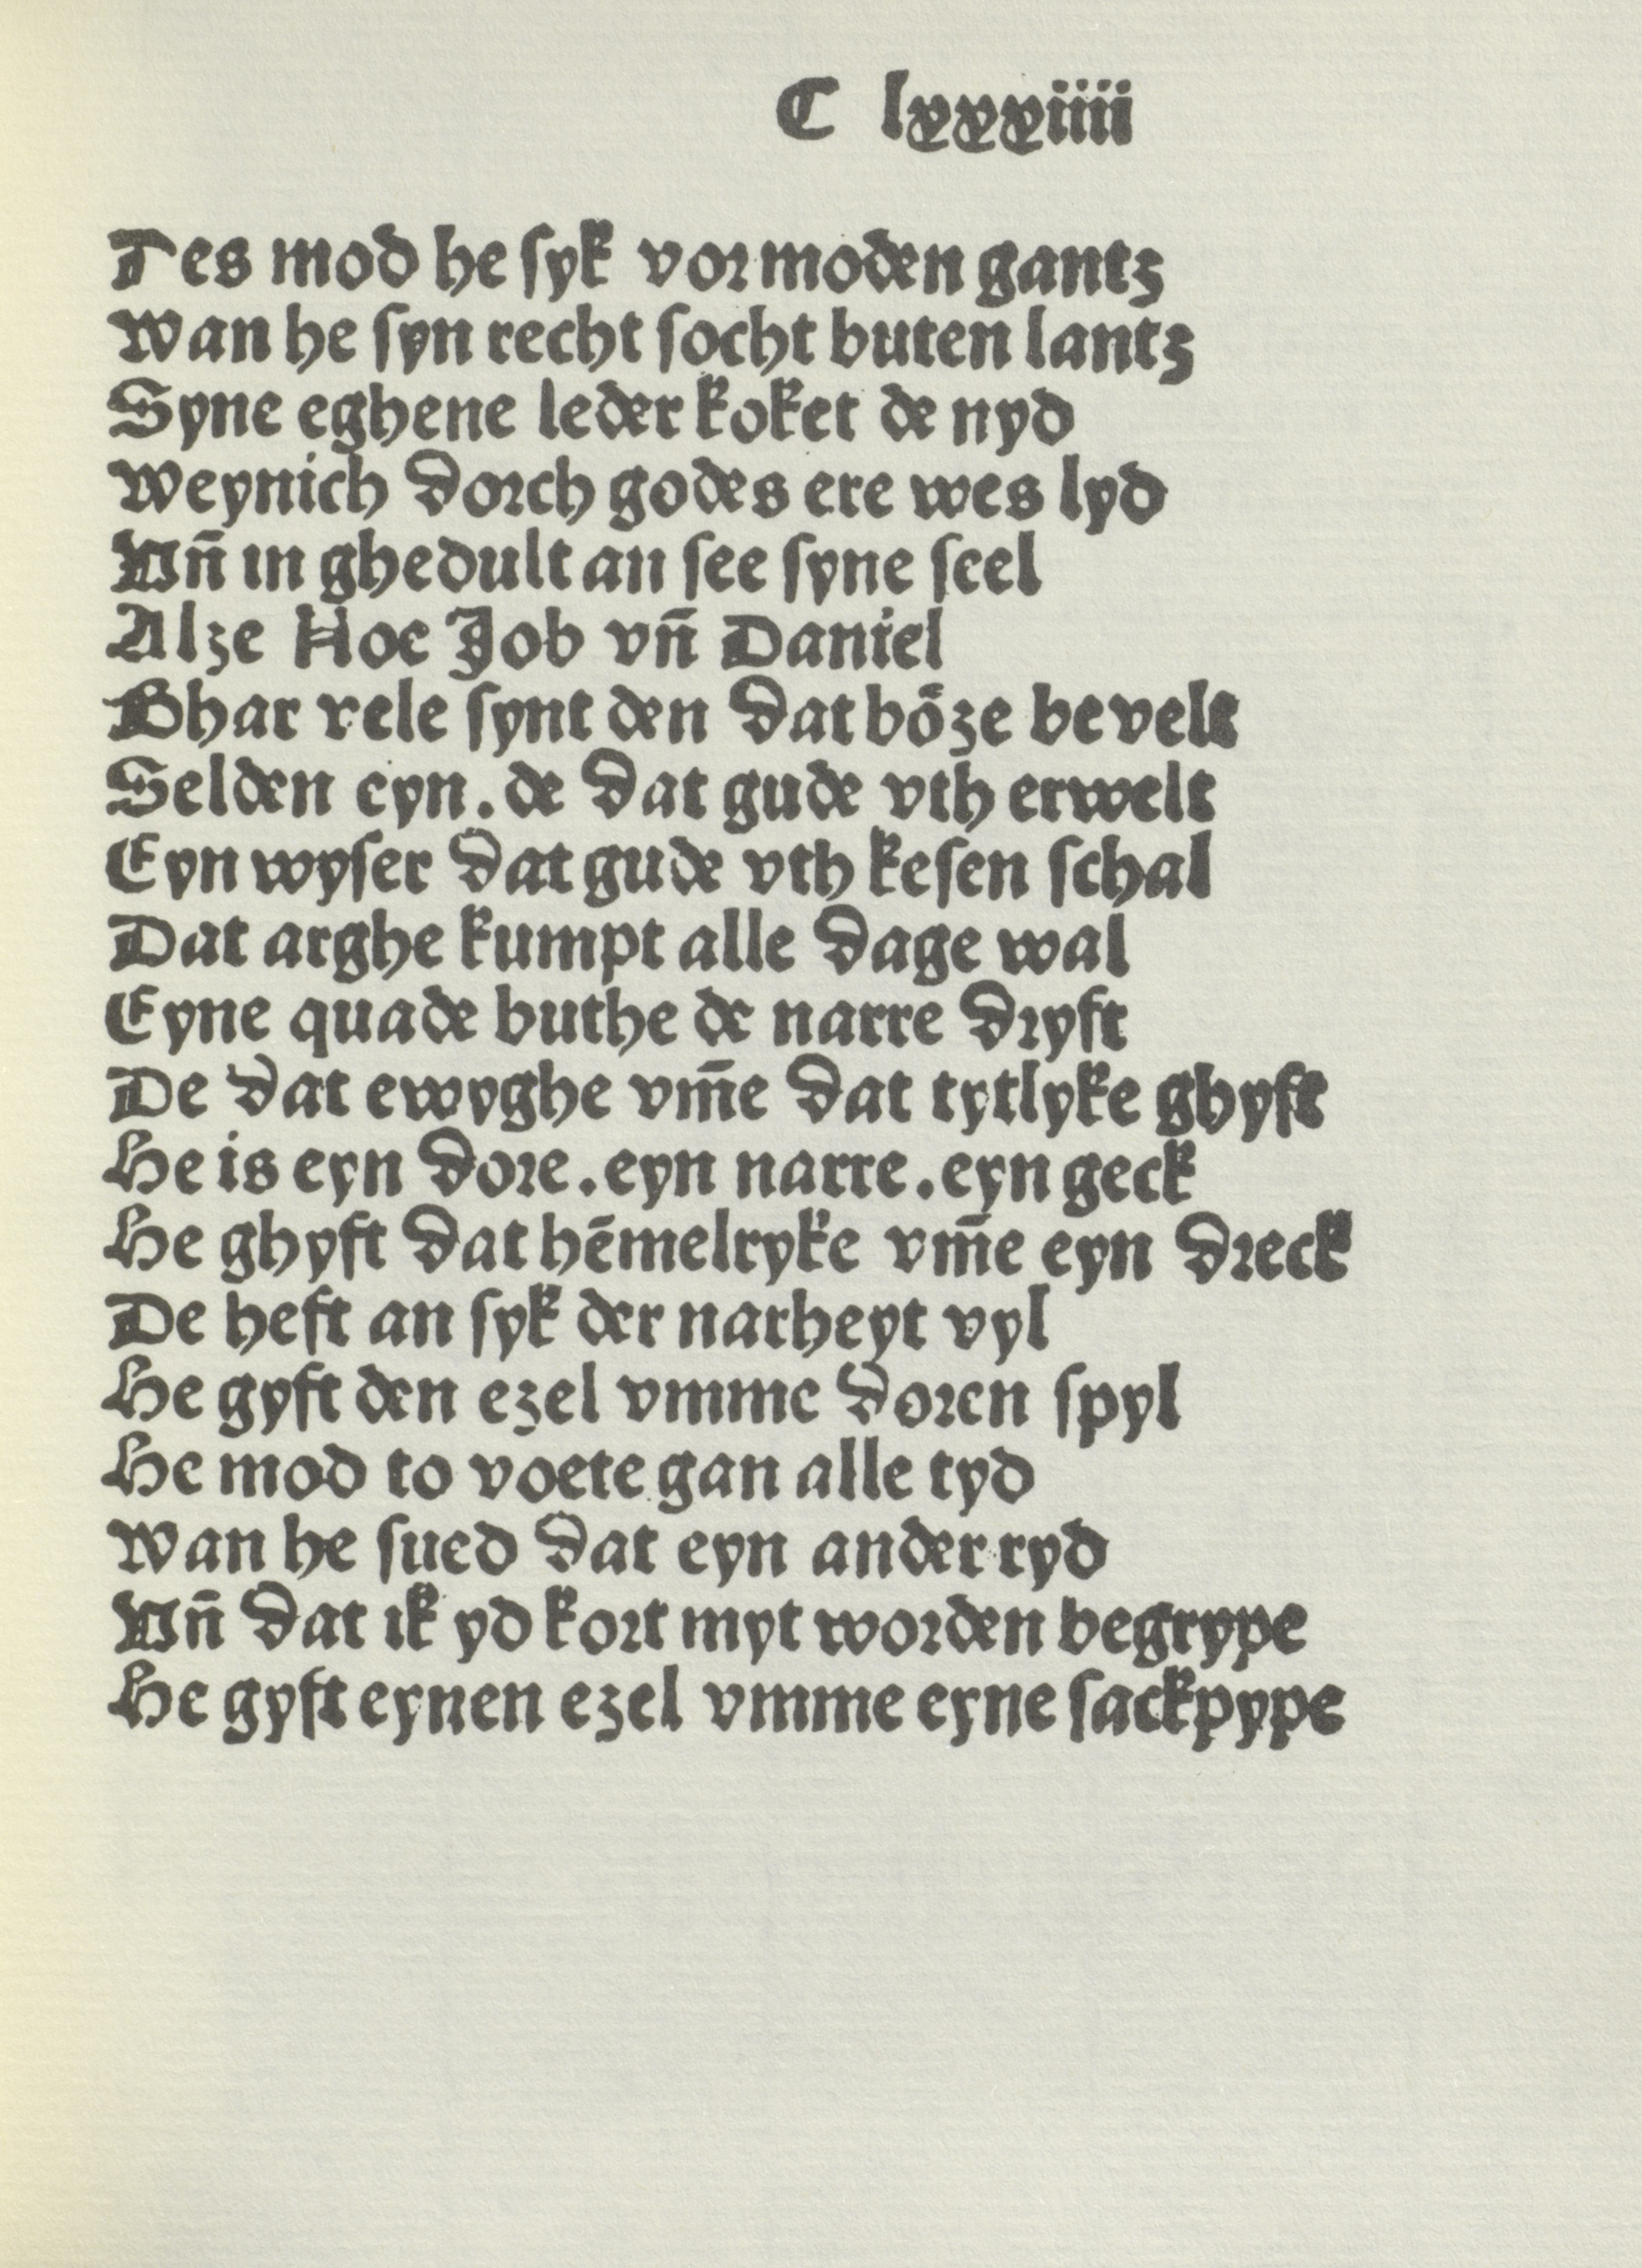 C lxxxiiii
Tes mod he ſyk vormoden gantz
Wan he ſyn recht ſocht buten lantz
Syne eghene leder koket de nyd
Weynich dorch godes ere wes lyd
Vñ in ghedult an ſee ſyne ſeel
Alze Hoe Job vñ Daniel
Ghar vele ſynt den dat bo̊ze bevelt
Selden eyn. de dat gude vth erwelt
Eyn wyſer dat gude vth keſen ſchal
Dat arghe kumpt alle dage wal
Eyne quade buthe de narre dryft
De dat ewyghe vm̄e dat tytlyke ghyft
He is eyn dore. eyn narre. eyn geck
He ghyft dat hēmelryke vm̄e eyn dreck
De heft an ſyk der narheyt vyl
He gyft den ezel vmme doren ſpyl
He mod to voete gan alle tyd
Wan he ſued dat eyn ander ryd
Vñ dat ik yd kort myt worden begrype
He gyft eynen ezel vmme eyne ſackpype